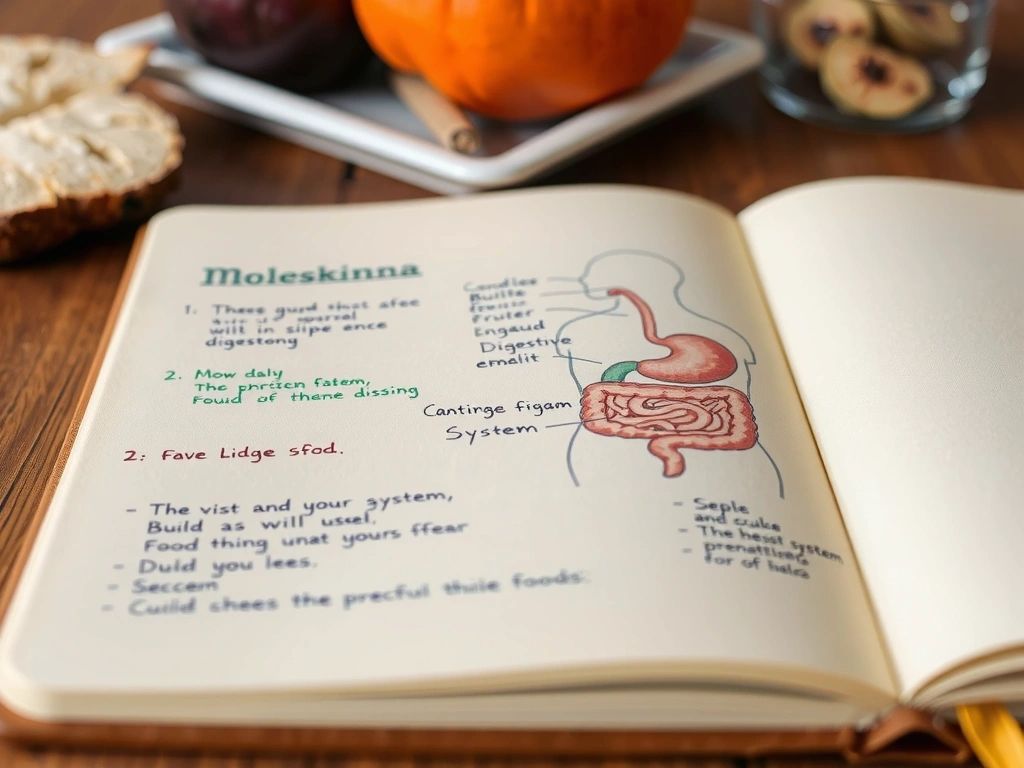 Moleskinna
1. These gurd that afee
wilt in slipe ence
digestony
2. Mow daly
The phrizen fatem,
Fouid of thane dissing
2: Fave Lidge sfod.
- The vist and your system,
Build as will useel.
Food thing unat yours ffear
- Duld you lees.
- Seccem
- Cuild shees the precful thile foods.
Candles
Builte
Fruter
Engaud
Digestive
emalit
Cantinge figam
System
- Seple
and culke
- The hesst system
- prenattizes
for of hales